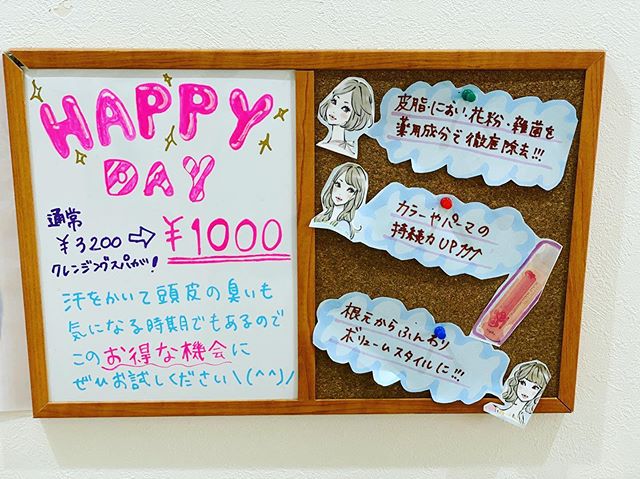 HAPPY
DAY
通常
¥3200 ⇨ ¥1000
クレンジングスパが!
汗をかいて頭皮の臭いも
気になる時期でもあるので
このお得な機会に
ぜひお試しください\(^^)/
皮脂・におい・花粉・雑菌を
薬用成分で徹底除去!!!
カラーやパーマの
持続力UP↑↑
根元からふんわり
ボリュームスタイルに!!!